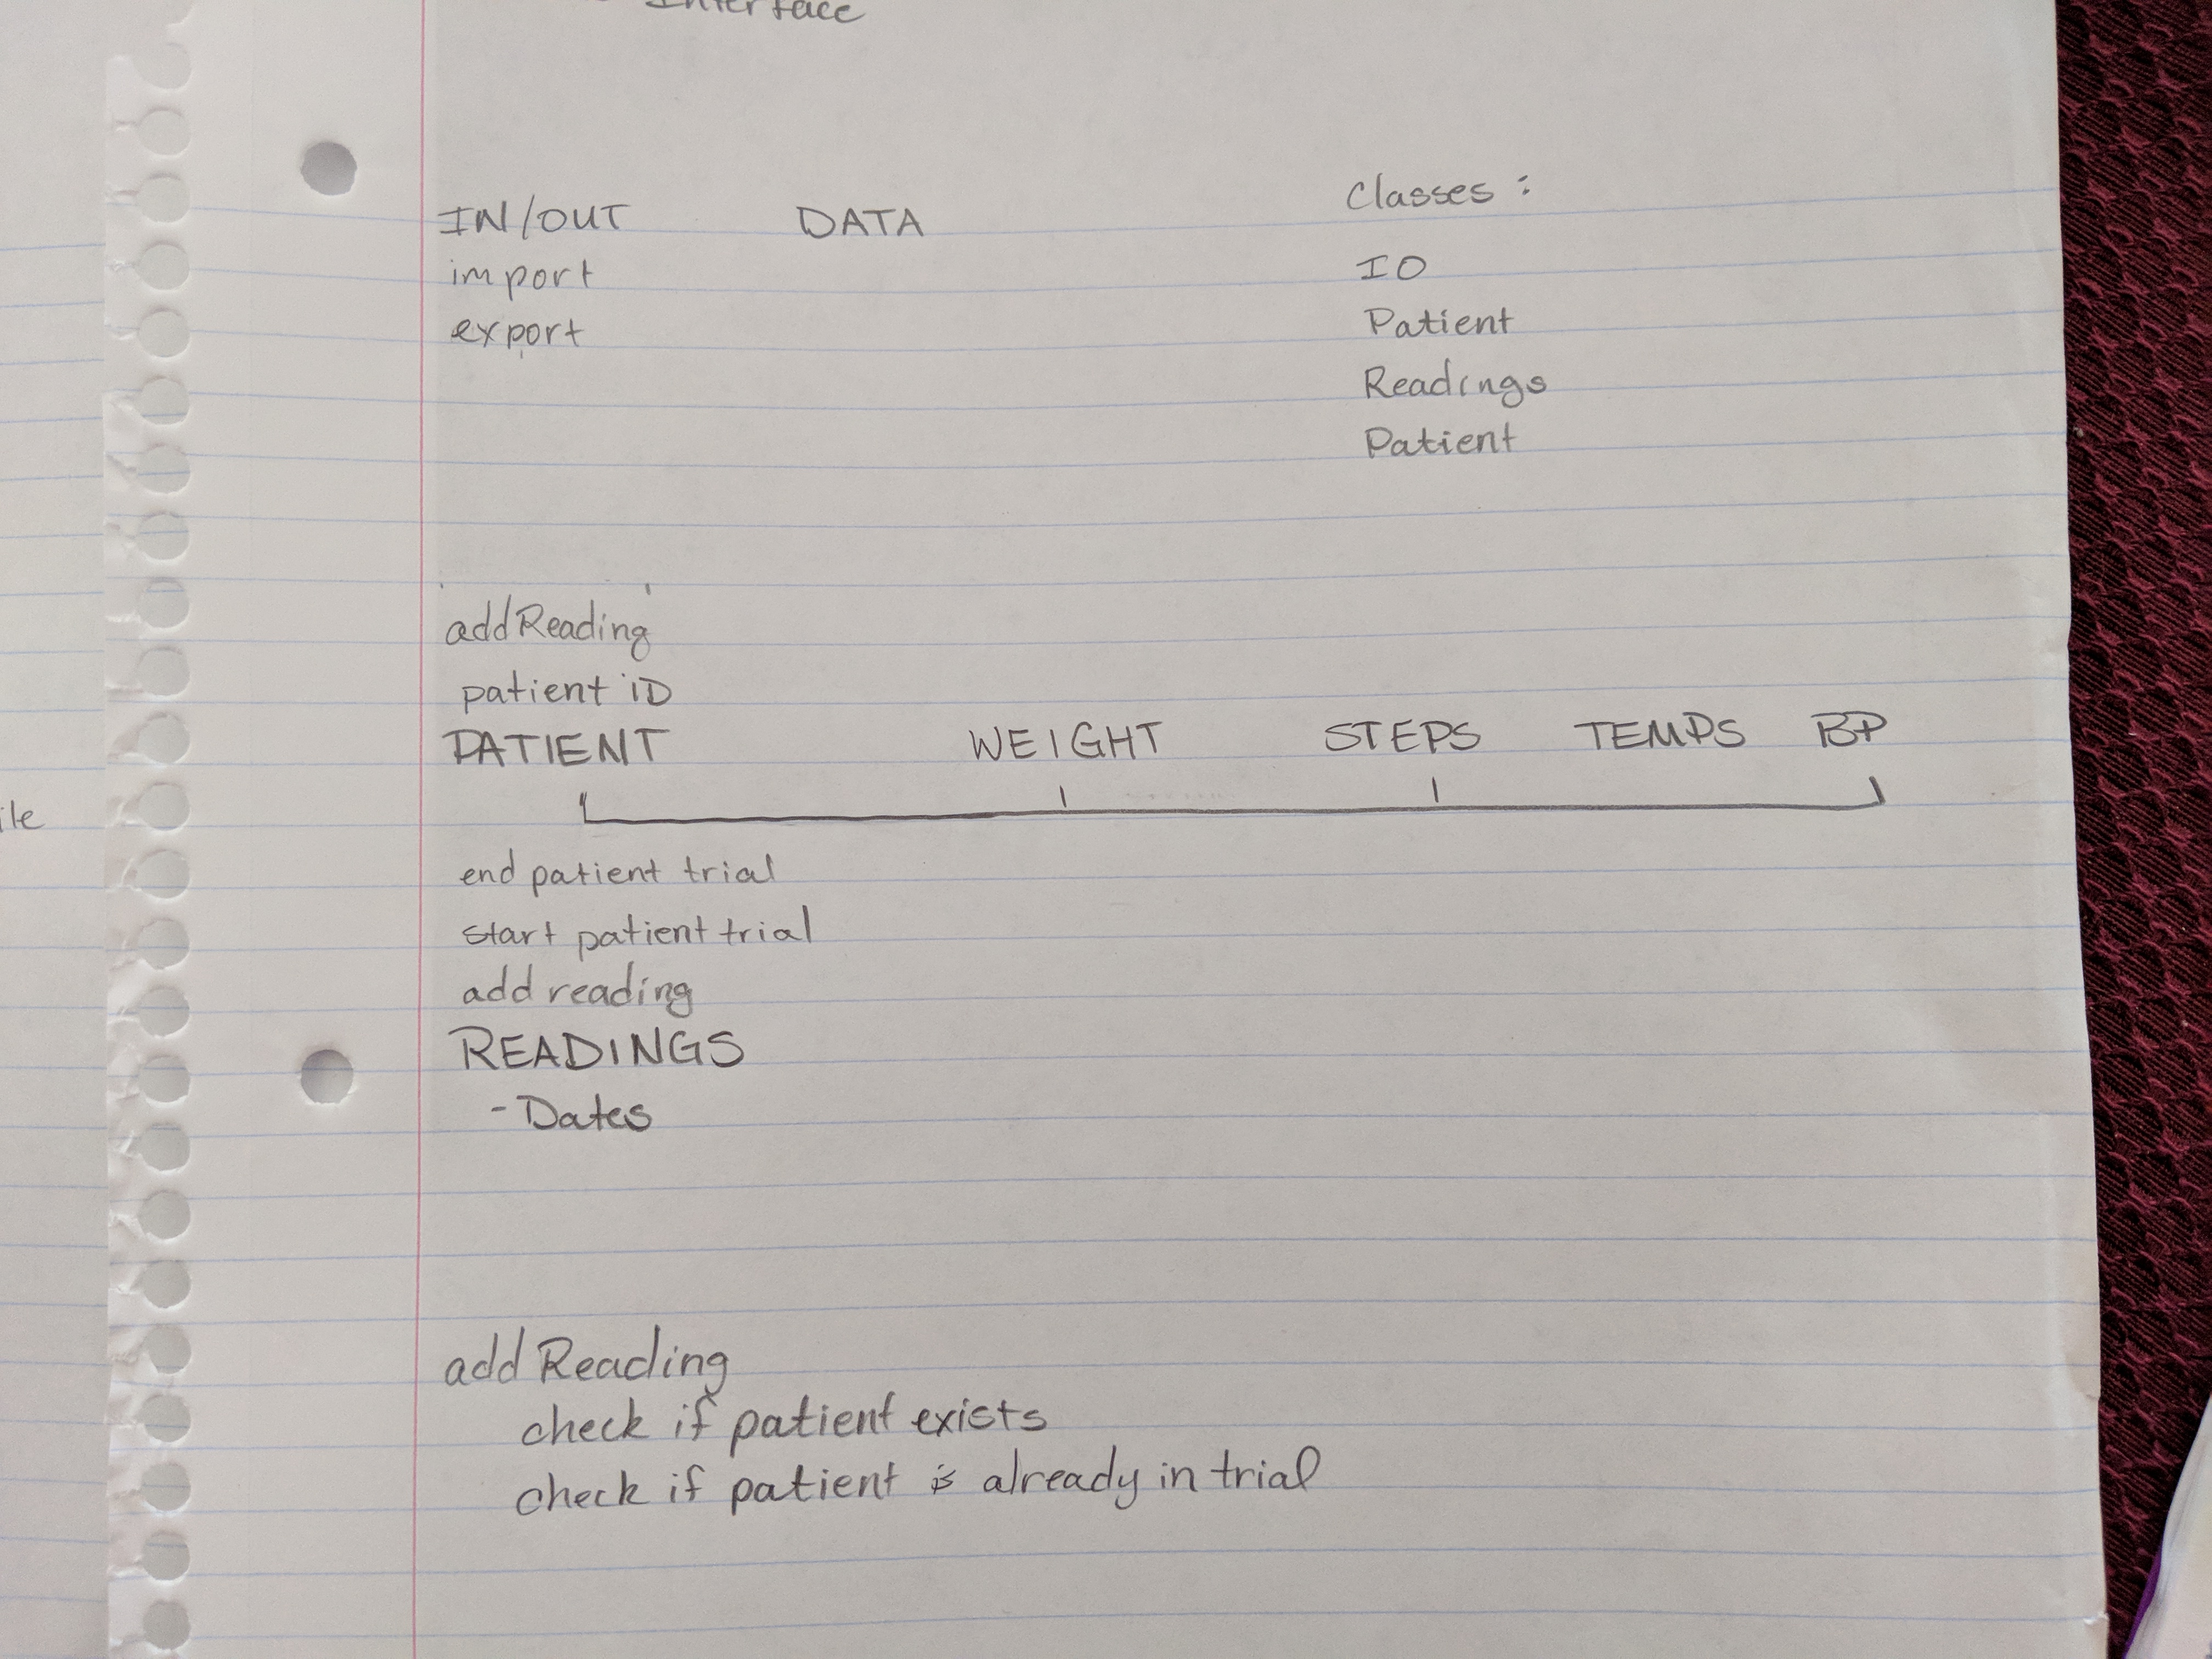 Interface
IN/OUT DATA Classes:
import IO
export Patient
Readings
Patient
addReading
patient ID
PATIENT WEIGHT STEPS TEMPS BP
ile
end patient trial
start patient trial
add reading
READINGS
- Dates
add Reading
check if patient exists
check if patient is already in trial